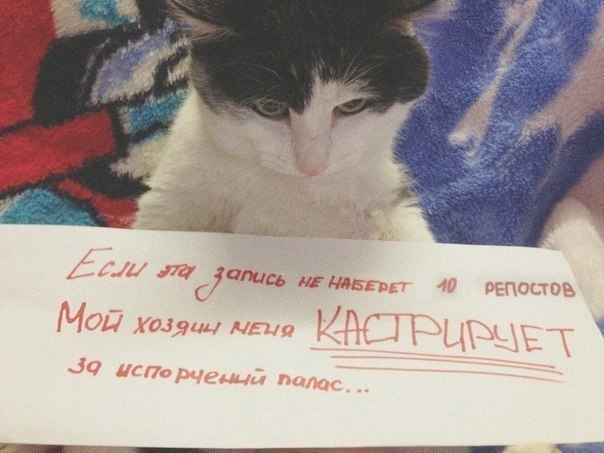 Если эта запись не наберет 10 репостов
Мой хозяин меня КАСТРИРУЕТ
за испорченый палас...